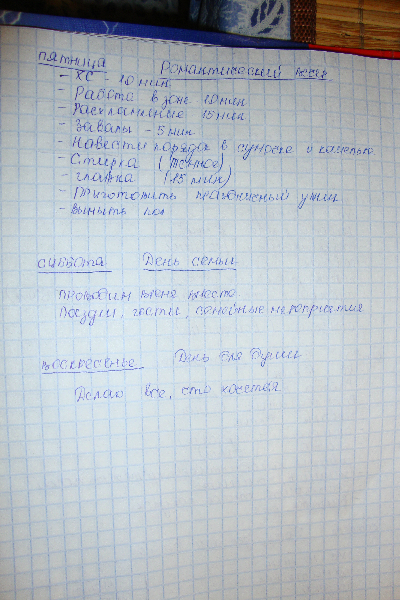 пятница Романтический вечер
- ХС - 10 мин
- Работа в зоне 10 мин
- Расхламление 15 мин
- Завалы - 5 мин
- Навести порядок в сумочке и кошельке
- Стирка (темное)
- глажка (15 мин)
- Приготовить праздничный ужин
- вымыть пол
суббота День семьи
проводим время вместе.
Поездки, гости, семейные мероприятия
воскресенье День для души
Делаю все, что хочется